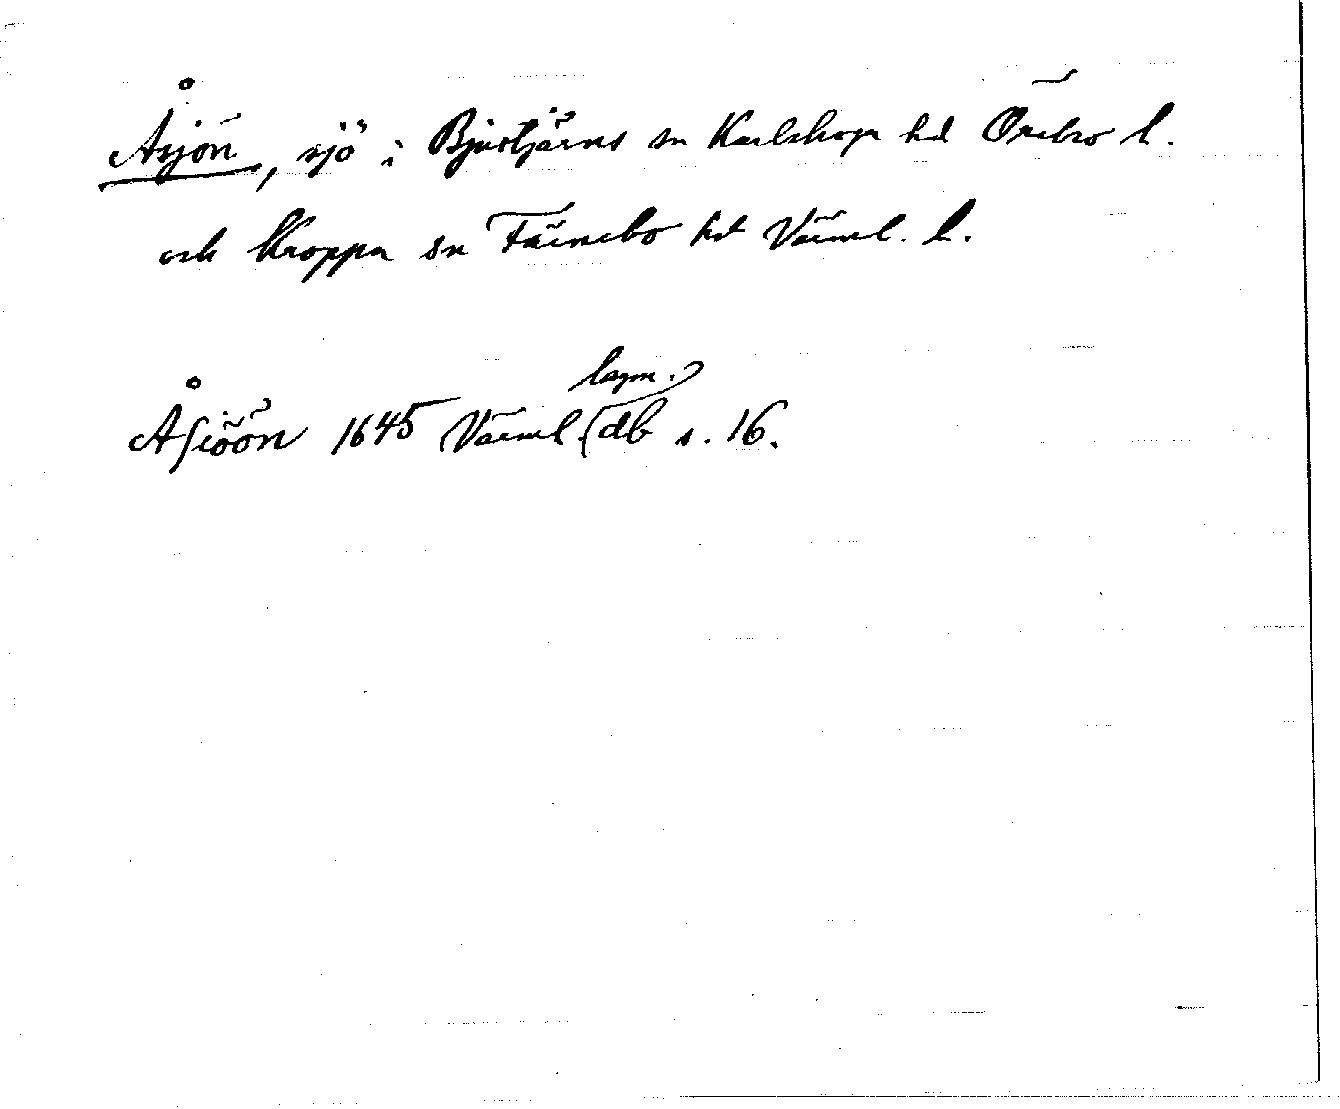 Åsjön, sjö i Bjurtjärns sn Karlskoga hd Örebro l.
och Kroppa sn Färnebo hd Värml. l.
lagm.
Åsiöön 1645 Värml. db s. 16.